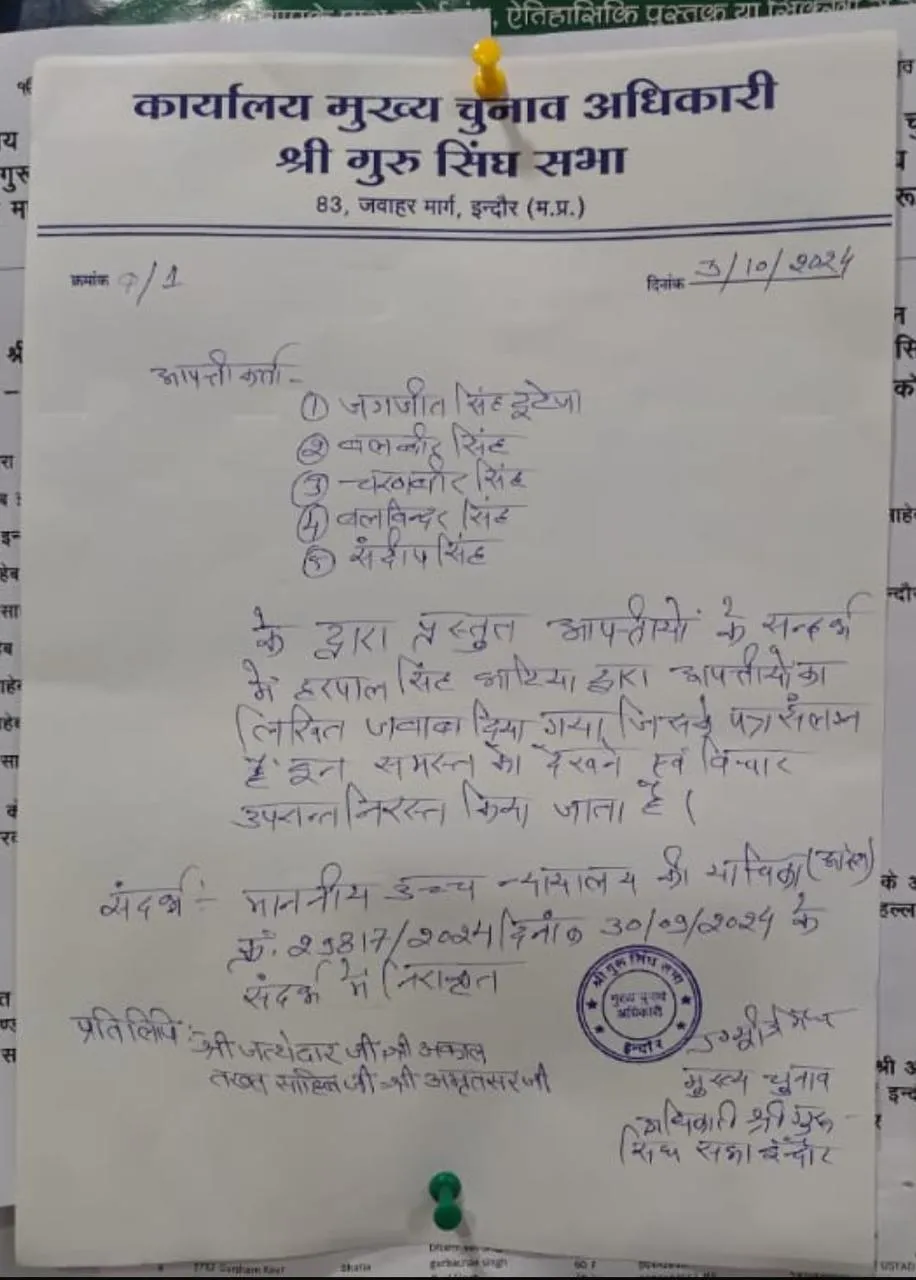 ऐतिहासिकि पुस्तक या
कार्यालय मुख्य चुनाव अधिकारी
श्री गुरु सिंघ सभा
83, जवाहर मार्ग, इन्दौर (म.प्र.)
क्रमांक 9/1
दिनांक 3/10/2024
आपत्ती कर्ता -
① जगजीत सिंह टूटेजा
② बलबीर सिंह
③ चरणबीर सिंह
④ बलविन्दर सिंह
⑤ संदीप सिंह
के द्वारा प्रस्तुत आपत्तीयों के सन्दर्भ
में हरपाल सिंह भाटिया द्वारा आपत्तीयों का
लिखित जवाब दिया गया, जिसके पत्र संलग्न
है इन समस्त को देखने एवं विचार
उपरान्त निरस्त किया जाता है।
संदर्भ :- माननीय उच्च न्यायालय की याचिका
क्रं. 29817/2024 दिनांक 30/09/2024 के
संदर्भ में निराकृत
श्री गुरु सिंघ सभा
मुख्य चुनाव
अधिकारी
इन्दौर
प्रतिलिपि : श्री जत्थेदार जी श्री अकाल
तख्त साहिब जी श्री अमृतसर जी
मुख्य चुनाव
अधिकारी श्री गुरु
सिंघ सभा इन्दौर